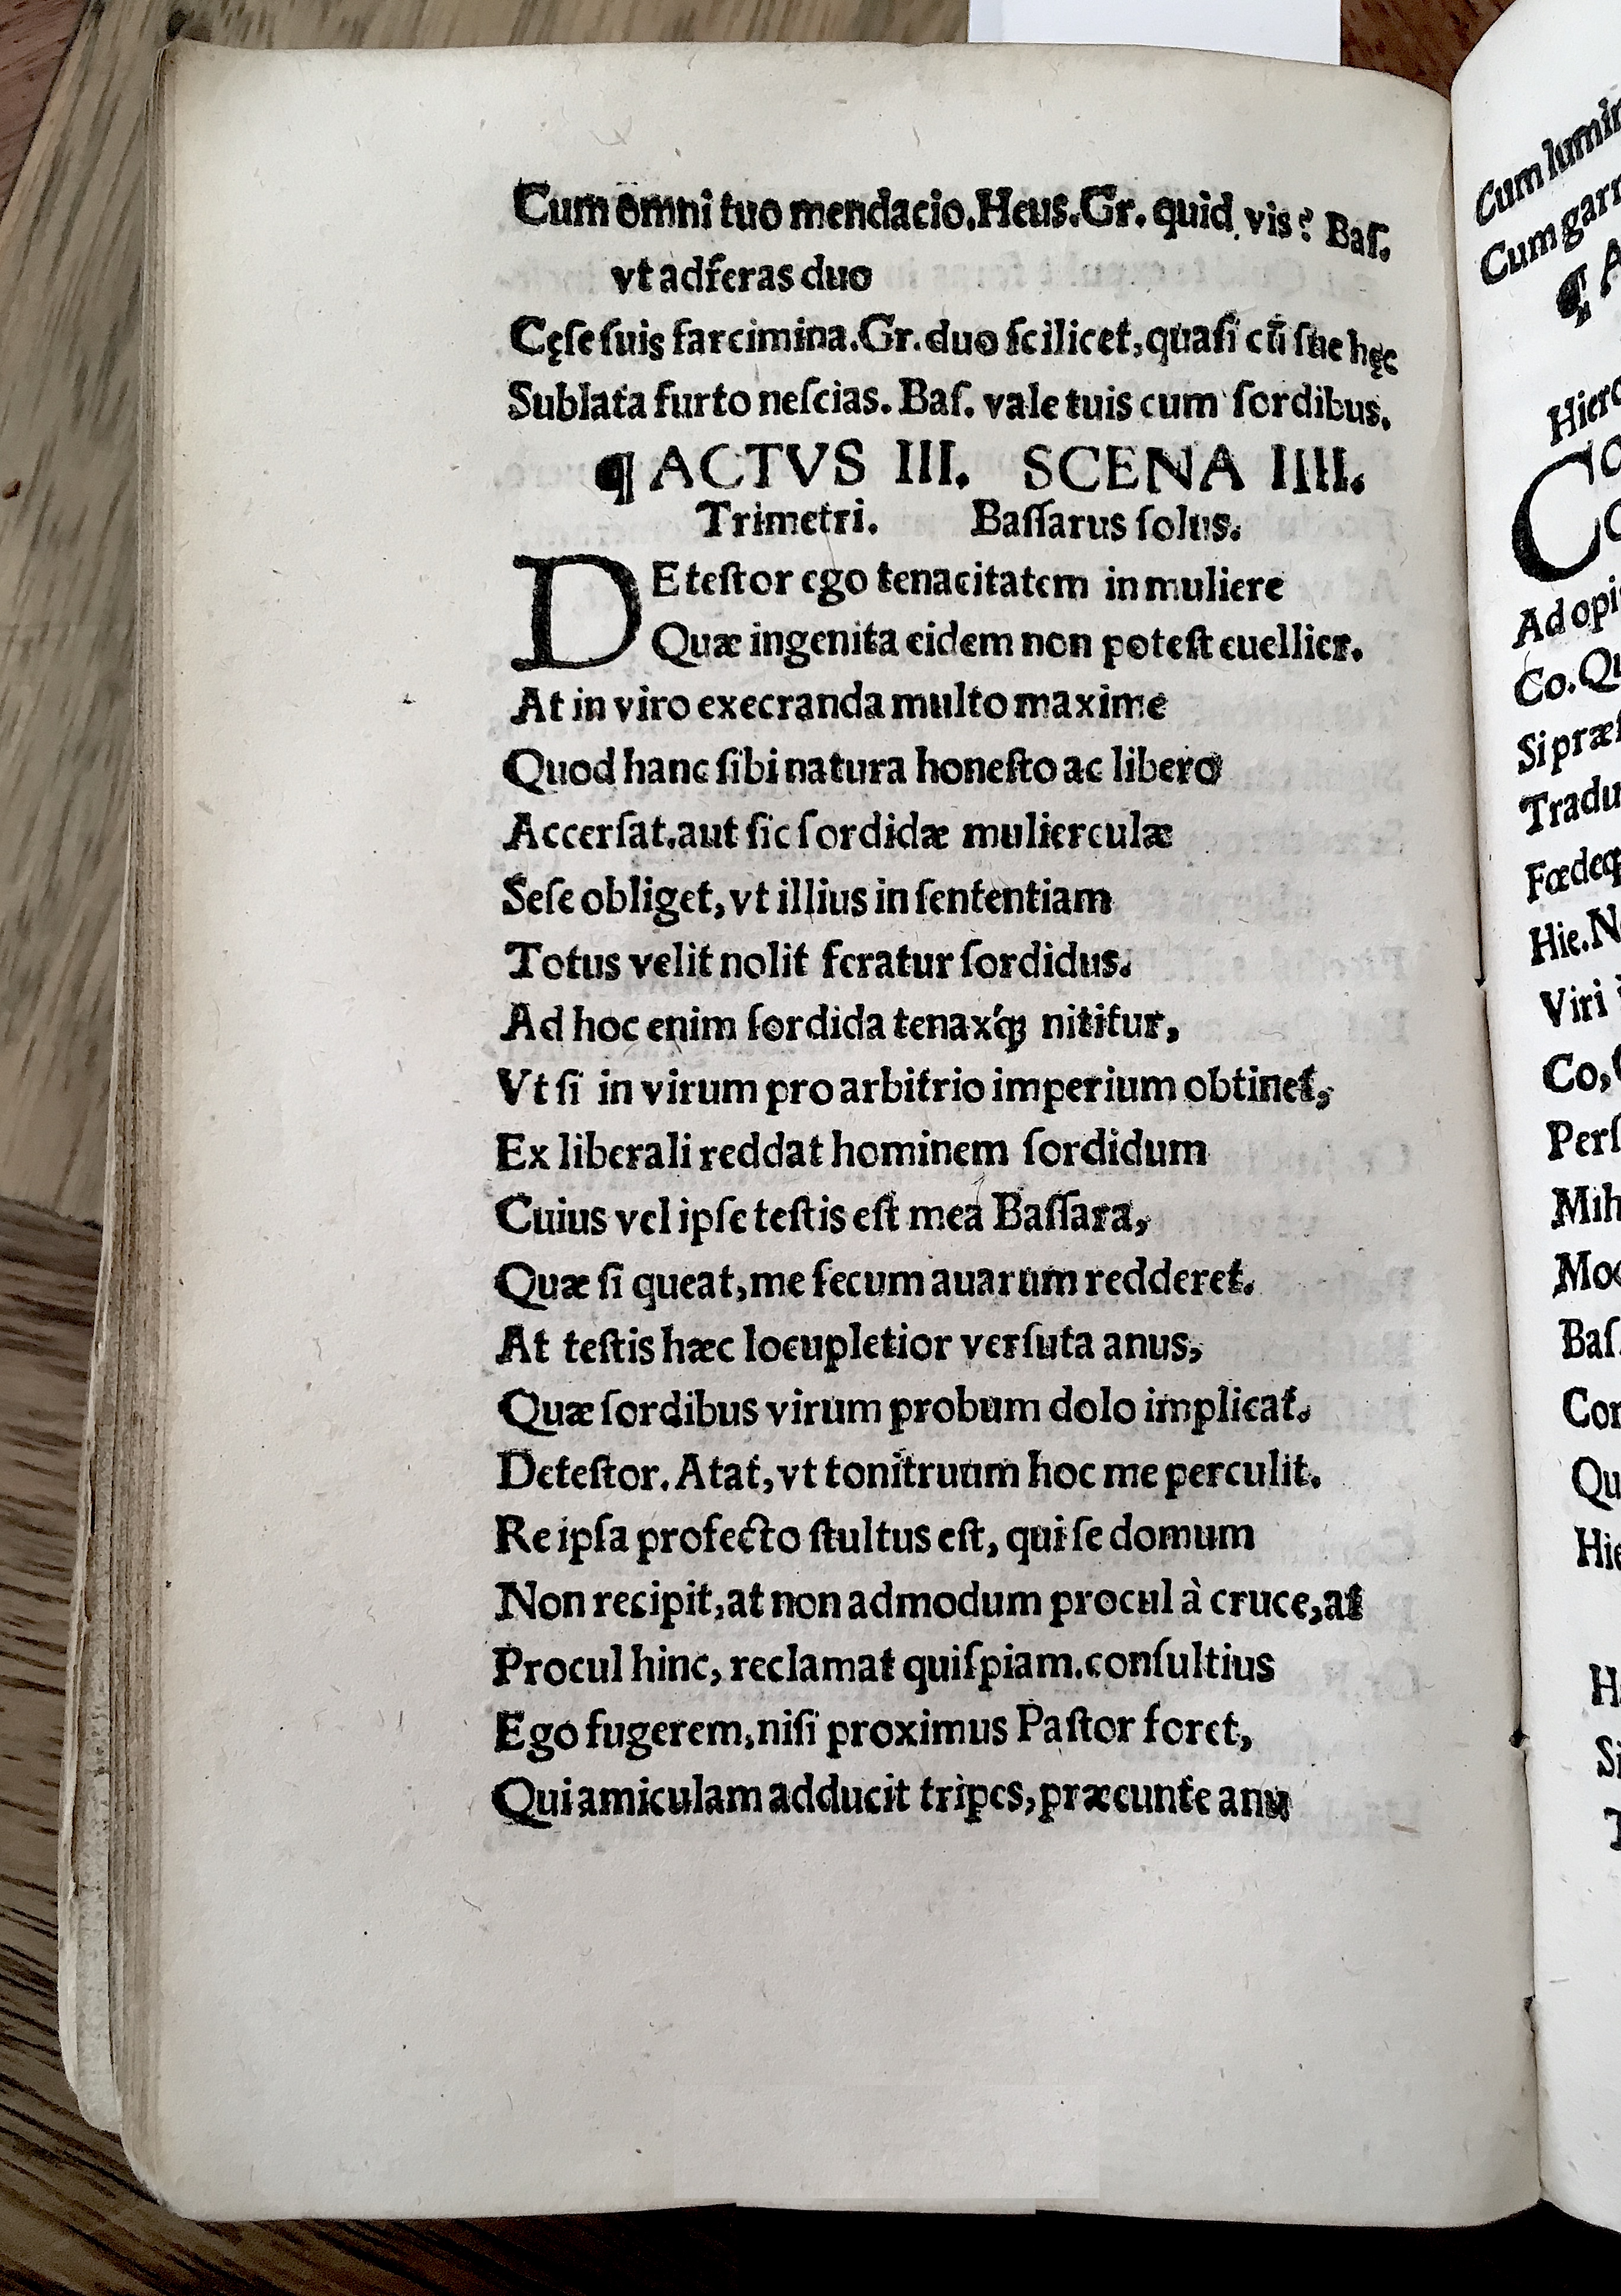 Cum omni tuo mendacio.Heus.Gr. quid vis? Baſ.
vt adferas duo
Cęſe ſuis farcimina.Gr.duo ſcilicet,quaſi cū ſue hęc
Sublata furto neſcias. Baſ. vale tuis cum ſordibus.
¶ ACTVS III. SCENA IIII.
Trimetri. Baſſarus ſolus.
DEteſtor ego tenacitatem in muliere
Quæ ingenita eidem non poteſt euellier.
At in viro execranda multo maxime
Quod hanc ſibi natura honeſto ac libero
Accerſat.aut ſic ſordidæ mulierculæ
Seſe obliget, vt illius in ſententiam
Totus velit nolit feratur ſordidus.
Ad hoc enim ſordida tenax'qꝫ nititur,
Vt ſi in virum pro arbitrio imperium obtinet,
Ex liberali reddat hominem ſordidum
Cuius vel ipſe teſtis eſt mea Baſſara,
Quæ ſi queat,me ſecum auarum redderet.
At teſtis hæc locupletior verſuta anus,
Quæ ſordibus virum probum dolo implicat.
Deteſtor. Atat, vt tonitruum hoc me perculit.
Re ipſa profecto ſtultus eſt, qui ſe domum
Non recipit,at non admodum procul à cruce,at
Procul hinc, reclamat quiſpiam.conſultius
Ego fugerem,niſi proximus Paſtor foret,
Qui amiculam adducit tripes,præeunte anu
Cum
Cum
¶ A
Hiero
Ad
Co.
Si
Hie.
Viri
Co,
Baſ.